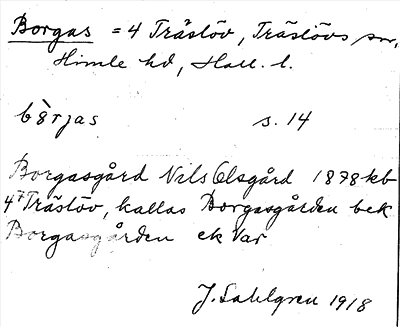 Borgas = 4 Träslöv, Träslövs sn,
Himle hd, Hall. l.
bòrjas s. 14
Borgasgård Nils Olsgård 1878 kb
4⁷ Träslöv, kallas Borgasgården bek
Borgasgården ek Var
J. Sahlgren 1918